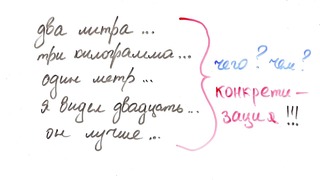 два литра ...
три килограмма ...
один метр ...
я видел двадцать ...
он лучше ...
чего? чем?
конкрети-
зация !!!